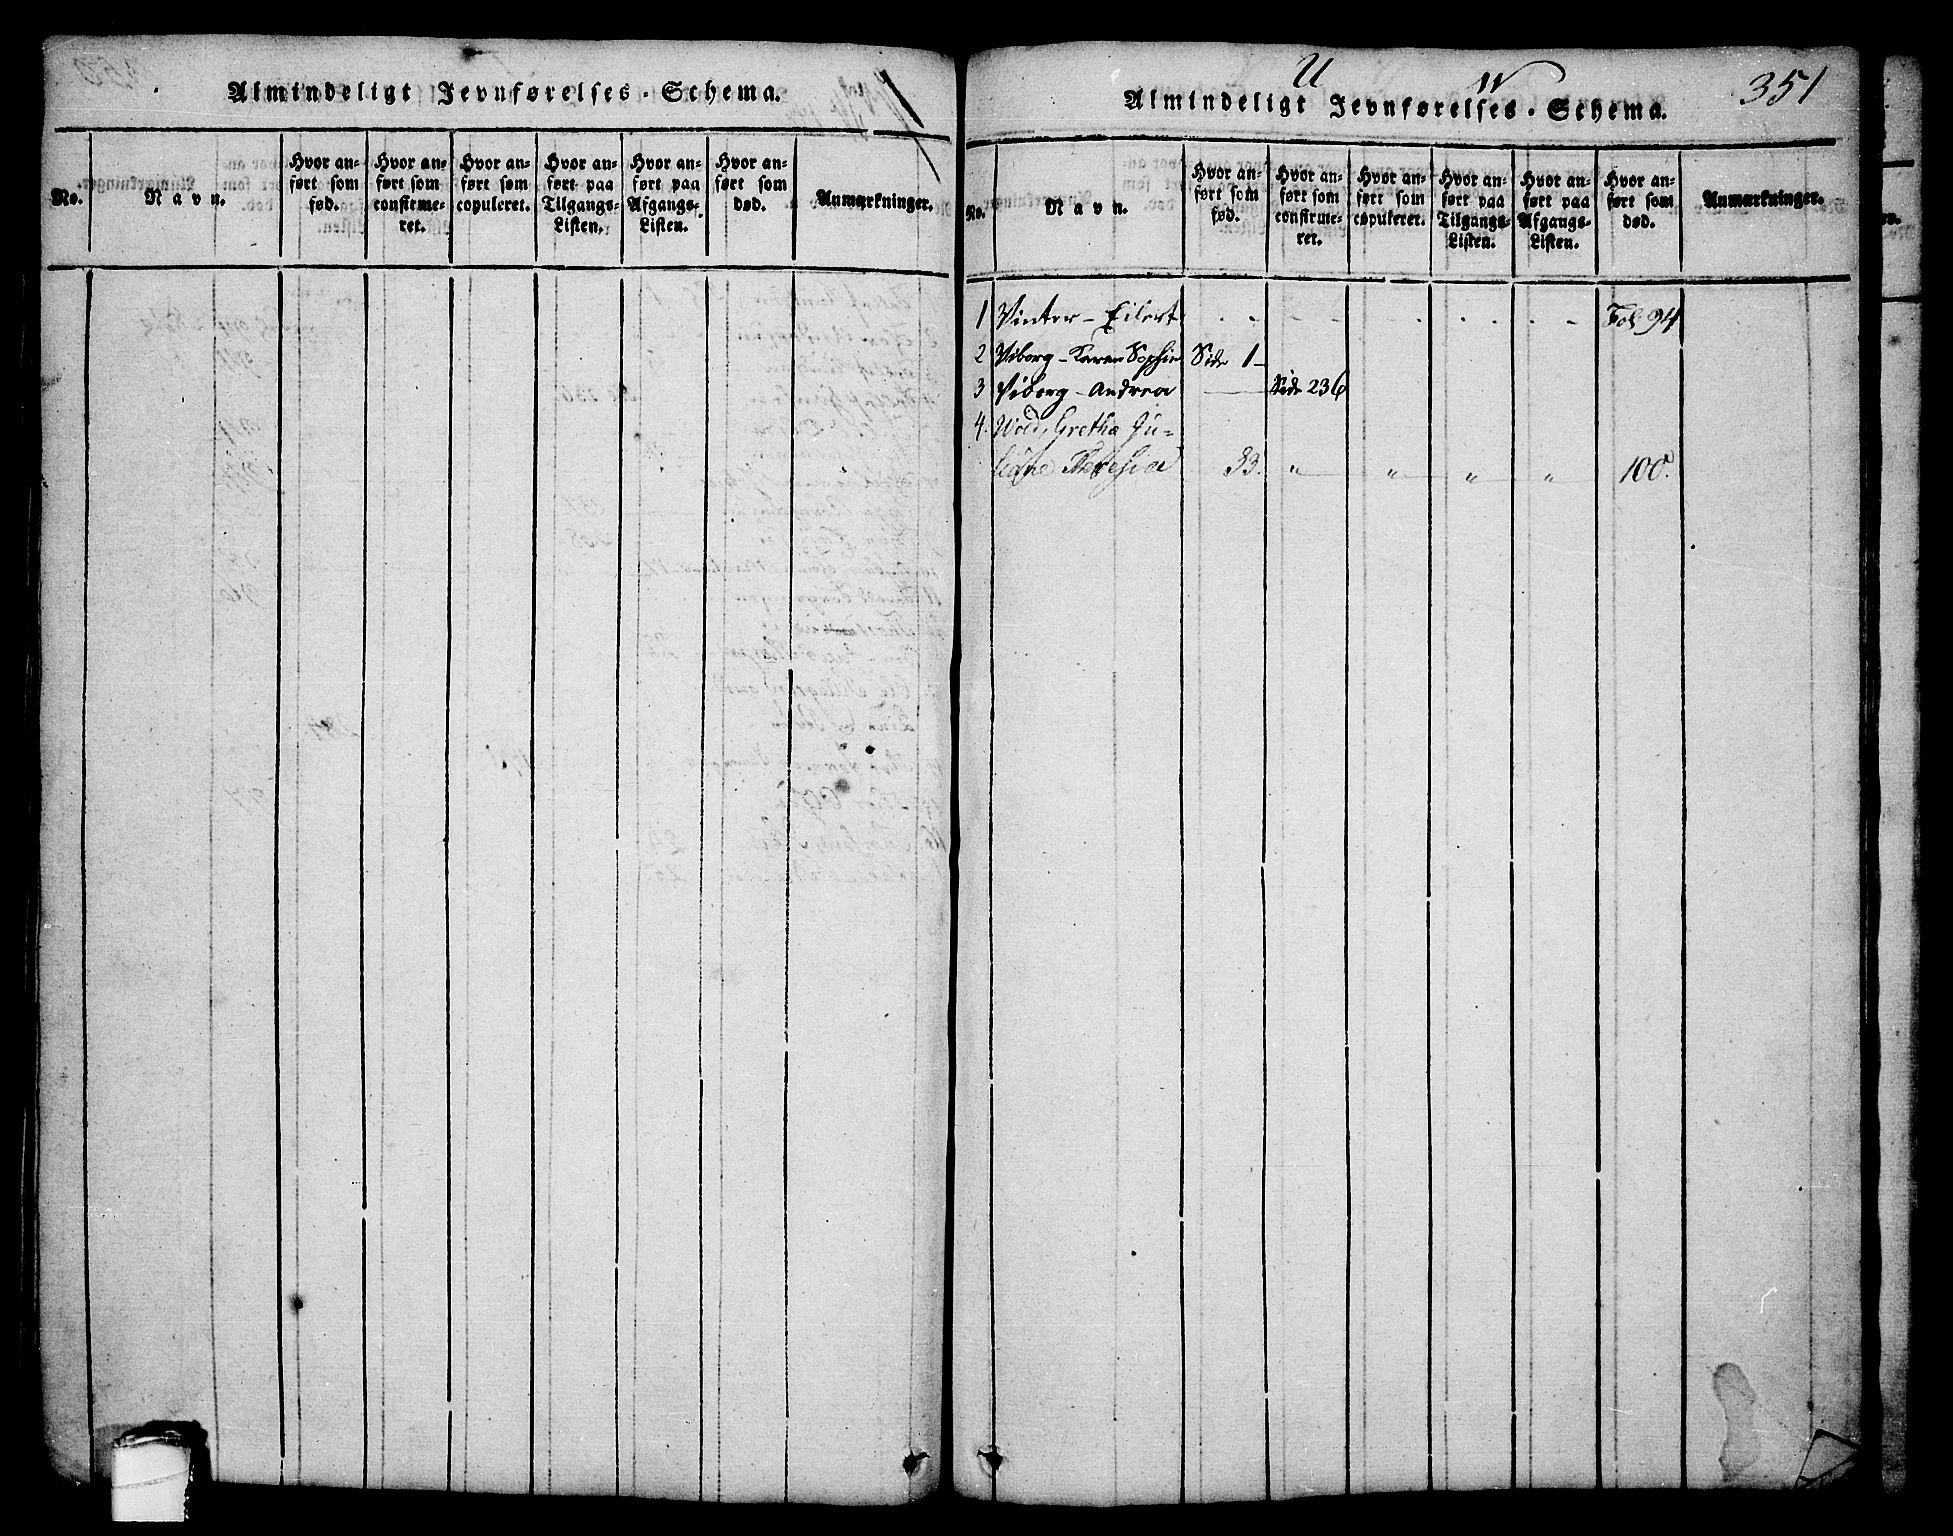 Almindeligt Jevnførelses-Schema.
No.
Navn.
Hvor an-
ført som
fød.
Hvor an-
ført som
confirme-
ret.
Hvor an-
ført som
copuleret.
Hvor an-
ført paa
Tilgangs-
Listen.
Hvor an-
ført paa
Afgangs-
Listen.
Hvor an-
ført som
død.
Anmærkninger.
U W 351
Almindeligt Jevnførelses-Schema.
No.
Navn.
Hvor an-
ført som
fød.
Hvor an-
ført som
confirme-
ret.
Hvor an-
ført som
copuleret.
Hvor an-
ført paa
Tilgangs-
Listen.
Hvor an-
ført paa
Afgangs-
Listen.
Hvor an-
ført som
død.
Anmærkninger.
1 Vinter - Eilert - - - - - - - - - Fol 94
2 Viborg - Karen Sophie Side 1 -
3 Viborg - Andrea — Side 236
4. Gretha Ju-
liane Theresia 33. " " " " 100.